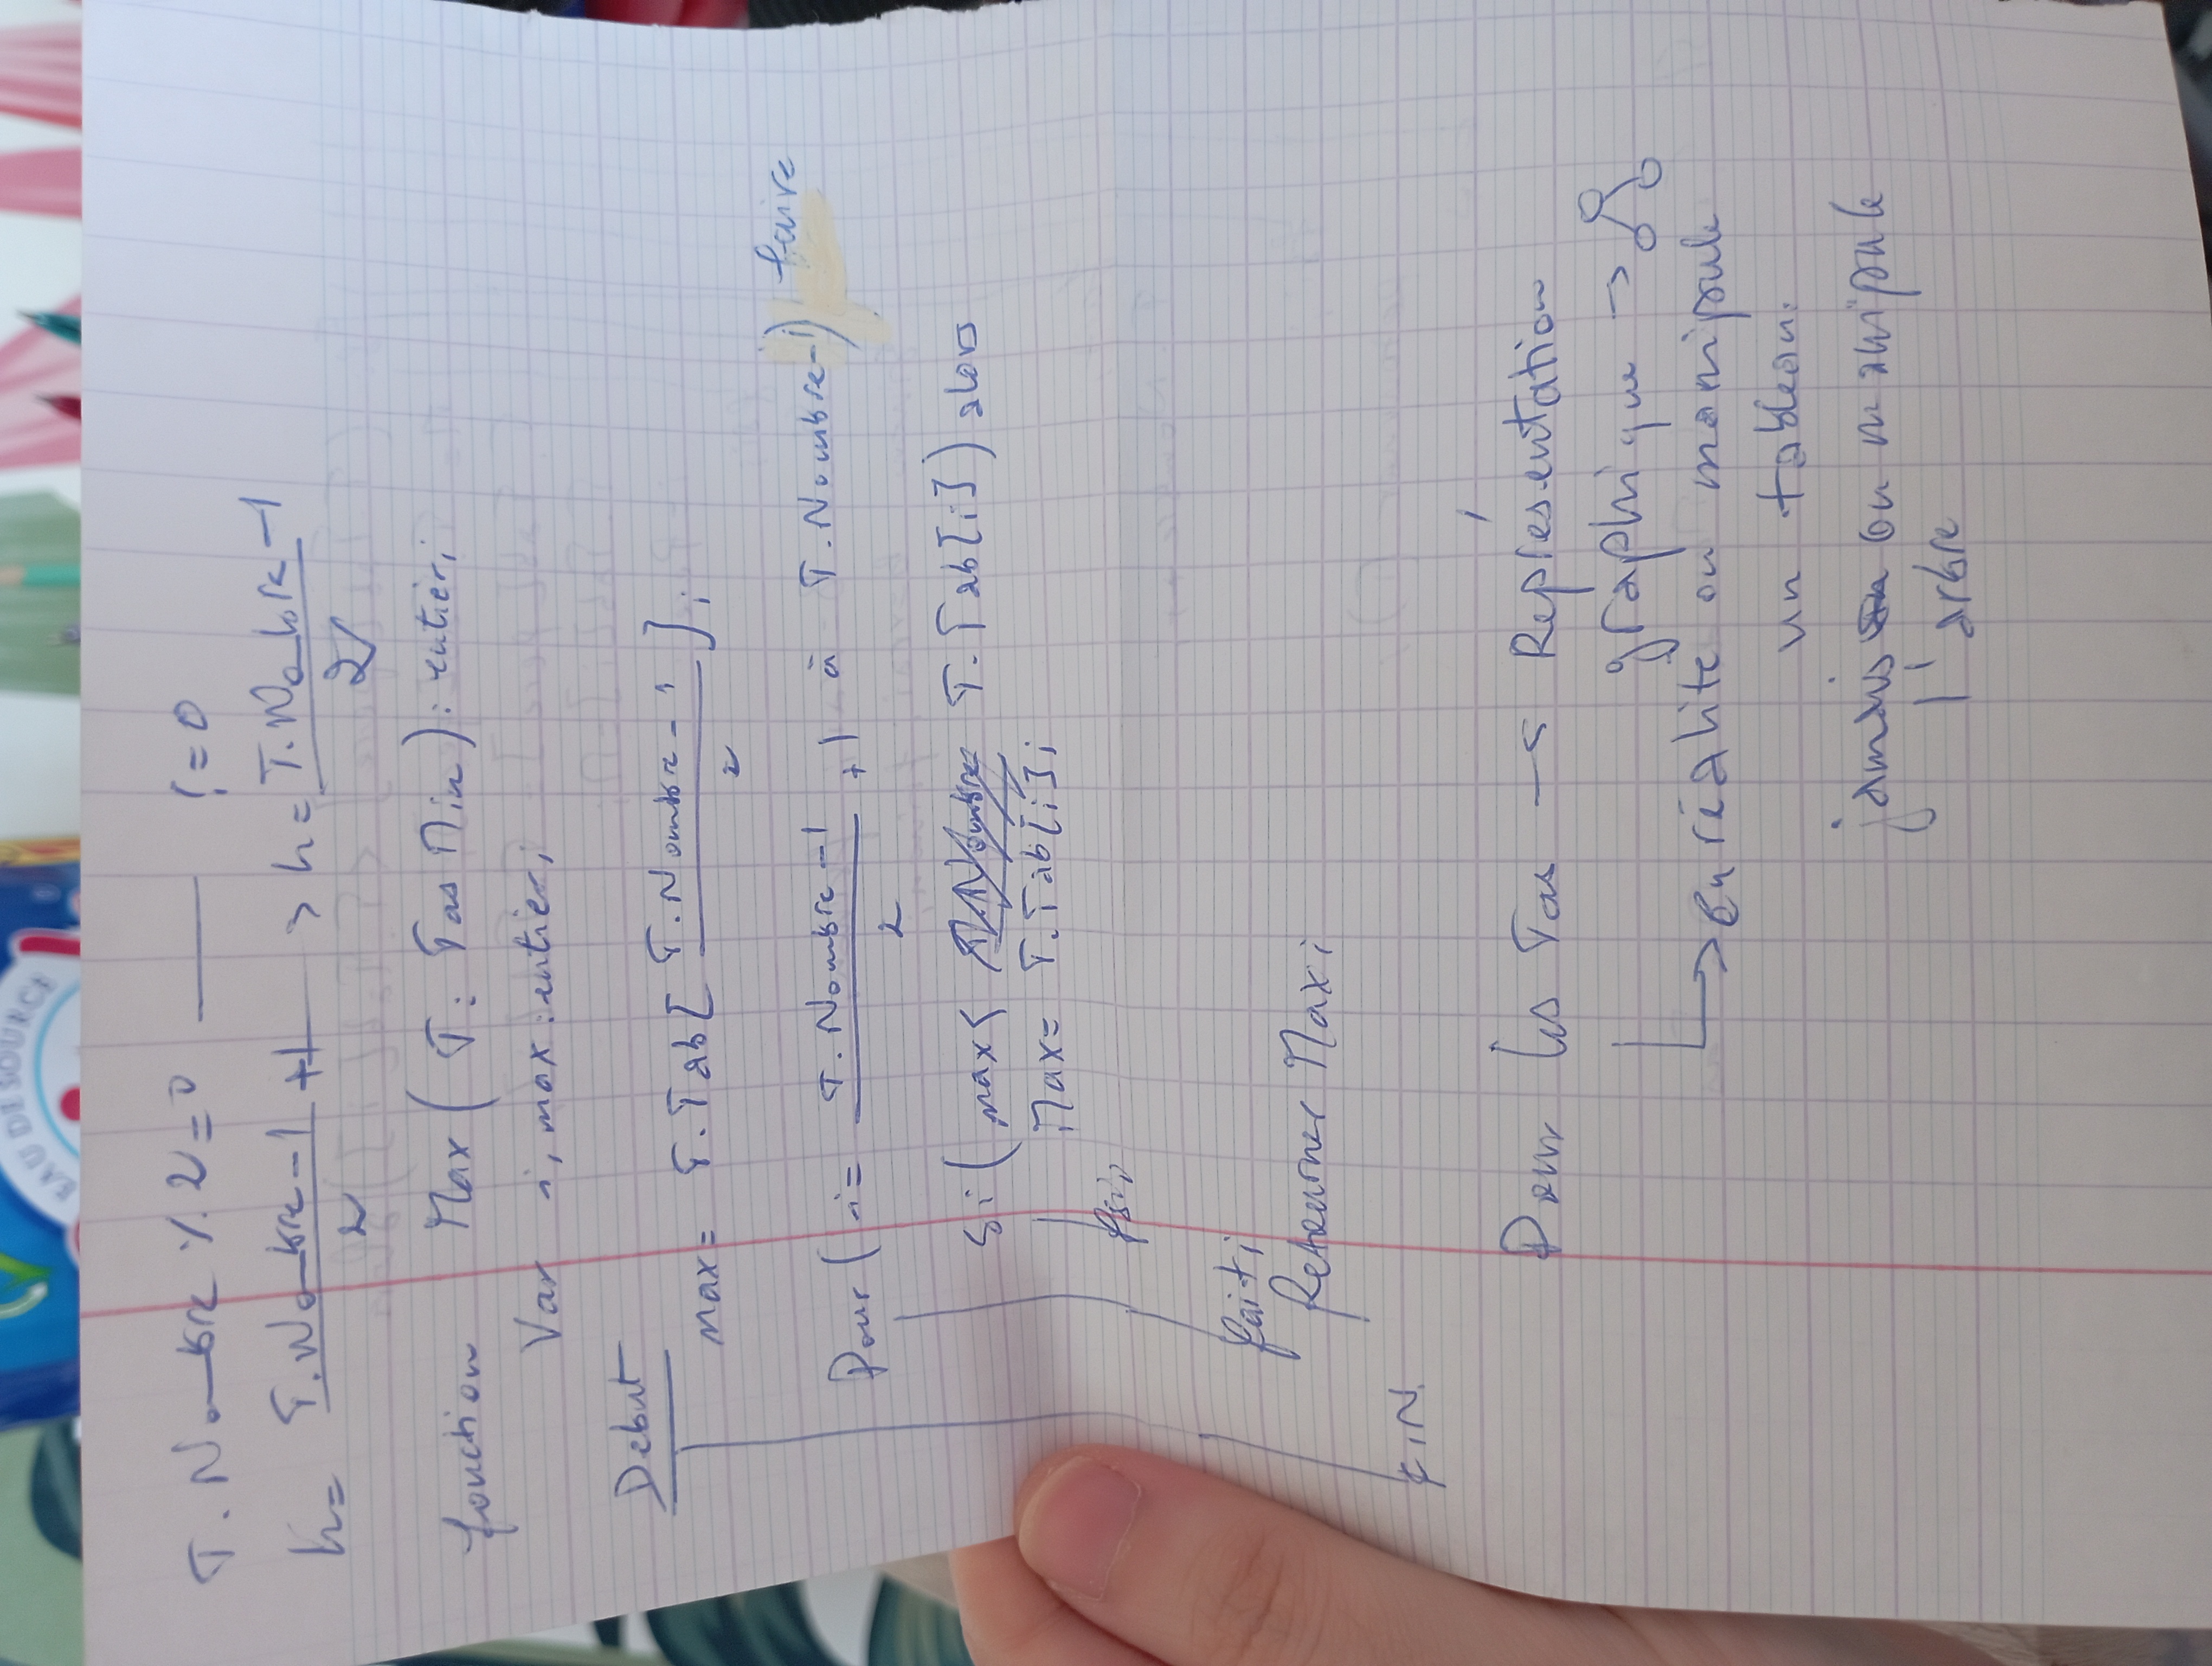 EAU DE SOURCE
T. Nombre % 2 = 0 —— != 0
h = T.Nombre - 1 / 2 + 1 —> h = T.Nombre - 1 / 2
fonction Max ( T : Tas Min ) : entier;
Var i, max : entier;
Debut
max = T.Tab [ T.Nombre - 1 / 2 ] ;
Pour ( i = T.Nombre - 1 / 2 + 1 à T.Nombre-1) faire
Si ( max < T.Nombre T.Tab[i] ) alors
Max = T.Tab[i] ;
fsi;
fait;
Retourner Max ;
FIN.
Pour les Tas → Représentation
graphique →
→ en réalité on manipule
un tableau.
jamais on manipule
l'arbre